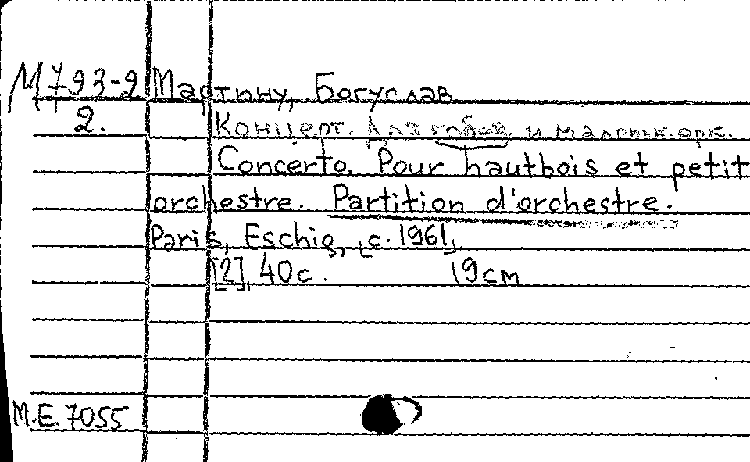 М793-2 Мартину, Богуслав
2. Концерт. Для гобоя и маленьк. орк.
Concerto. Pour hautbois et petit
orchestre. Partition d'orchestre.
Paris, Eschig, [c. 1961].
[2], 40 с. 19 см
M.E. 7055